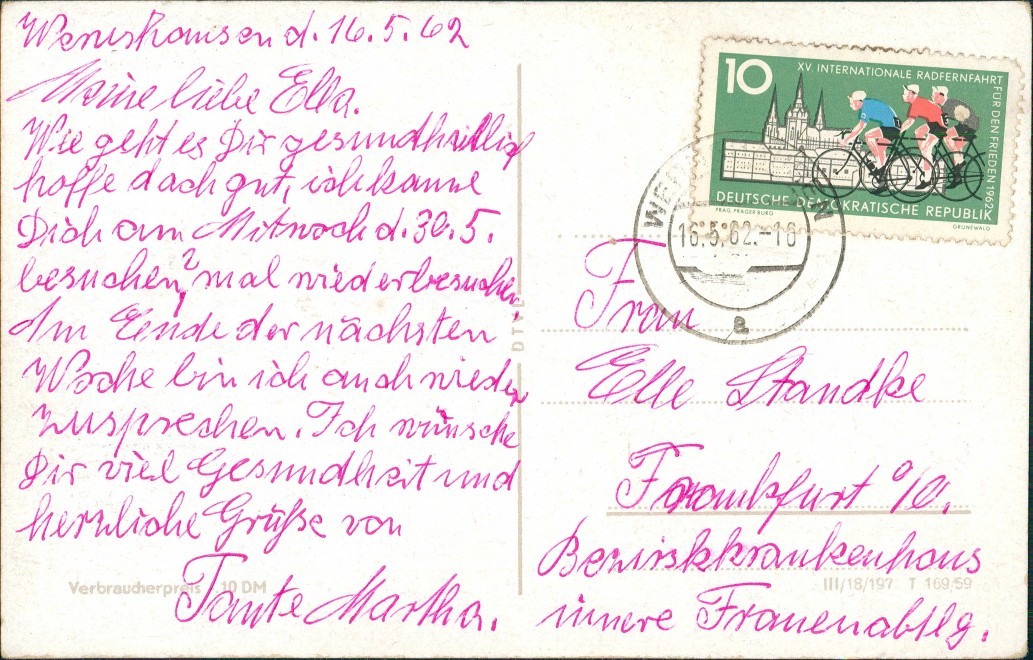 Wernshausen d. 16.5.62
Meine liebe Ella.
Wie geht es Dir gesundheitlich
hoffe dach gut, ich kanne
Dich am Mitwoch d. 30.5.
besuchen, mal wieder besuchen,
?
Am Eende der nächsten
Woche bin ich auch wieder
zusprechen. Ich wünsche
Dir viel Gesundheit und
herzliche Grüße von
Tante Martha.
Verbraucherpreis 10 DM
10
XV. INTERNATIONALE RADFERNFAHRT
FÜR DEN FRIEDEN 1962
DEUTSCHE DEMOKRATISCHE REPUBLIK
PRAG, PRAGER BURG
GRUNEWALD
16.5.62.-16
a
Frau
Elle Standke
Frankfurt o/O.
Bezirskkrankenhaus
innere Frauenabtlg.
III/18/197 T 169/59